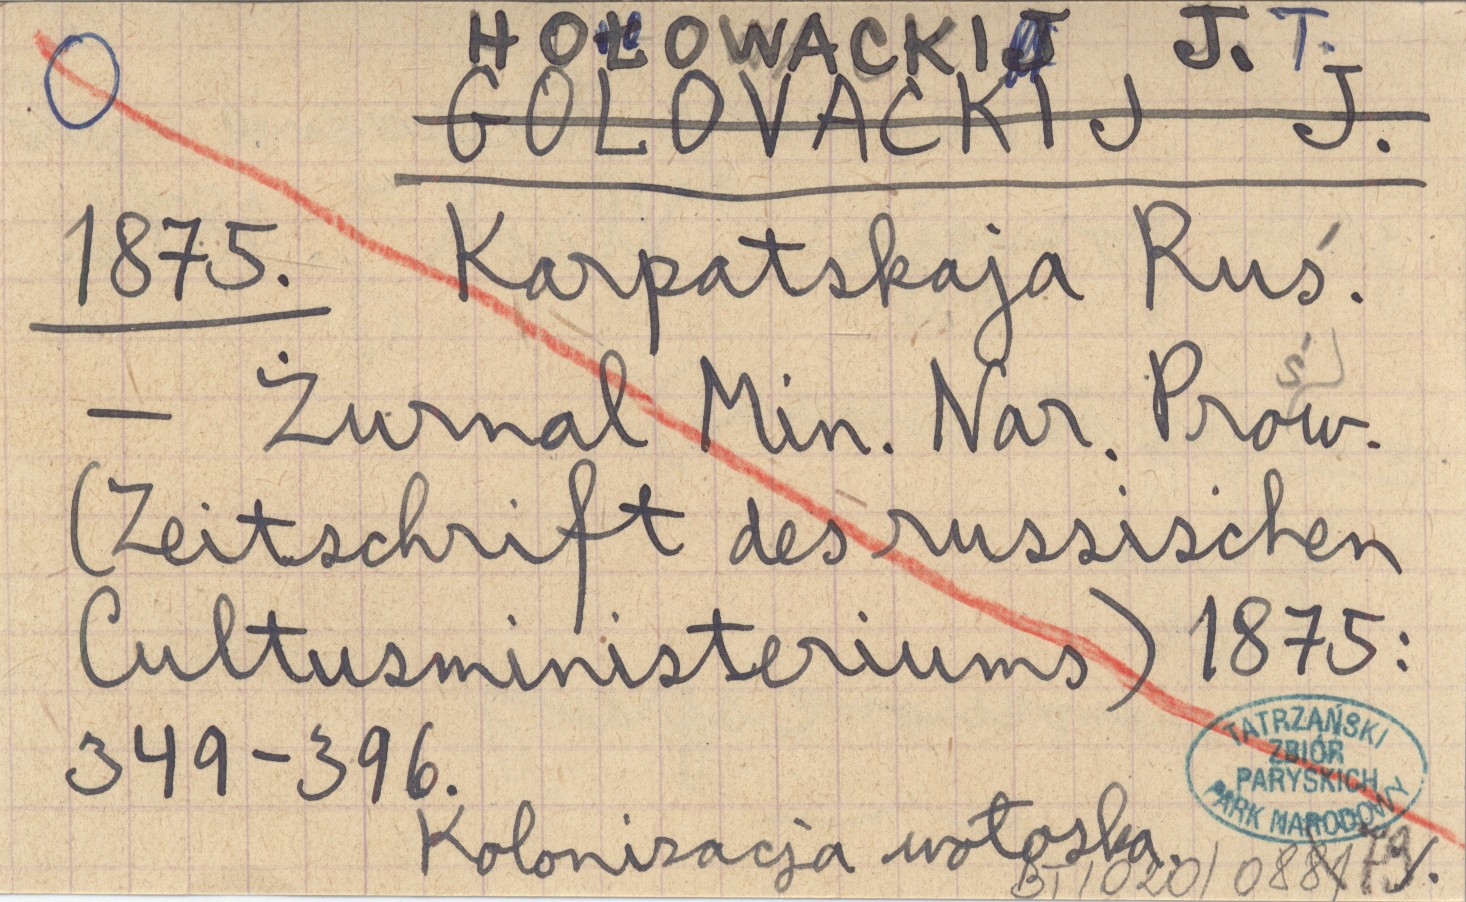 HOŁOWACKIJ J. T.
GOLOVACKIJ J.
1875. Karpatskaja Ruś.
— Żurnal Min. Nar. Prow.
ś
(Zeitschrift des russischen
Cultusministeriums) 1875:
349-396.
TATRZAŃSKI
ZBIÓR
PARYSKICH
PARK NARODOWY
Kolonizacja wołoska.
BT/1020/088/